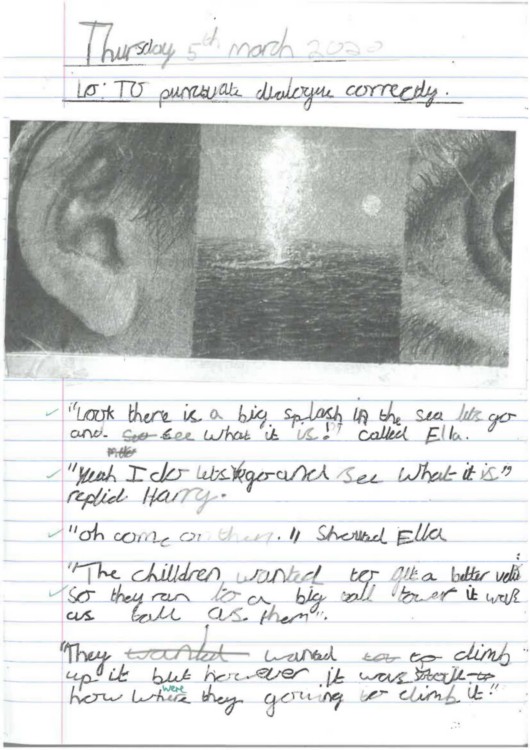 Thursday 5th march 2020
LO: TO puncuate dialogue correctly.
"Look there is a big splash in the sea lets go
and see what it is!" called Ella.
"Yeah I do lets go and see what it is"
replid Harry.
"oh come on then." Shouted Ella
"The chilldren wanted to get a better veiw
So they ran to a big tall tower it was
as tall as them".
"They wanted to climb
up it but however it was
how were they gowing to climb it!"